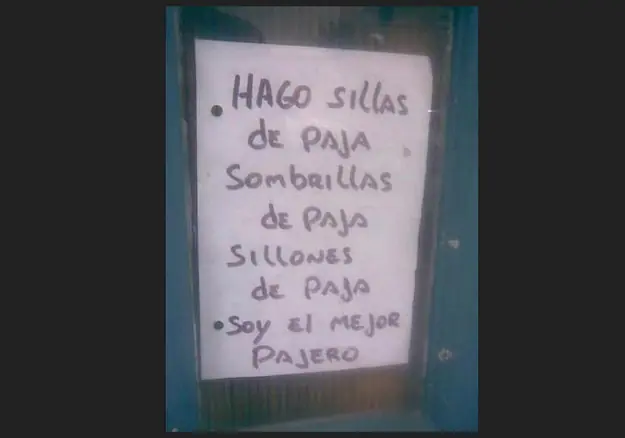 • HAGO SillAS
dE PAJA
SOmbRILLAS
dE PAJA
SILLONES
dE PAJA
• SOy El MEJOR
PAJERO